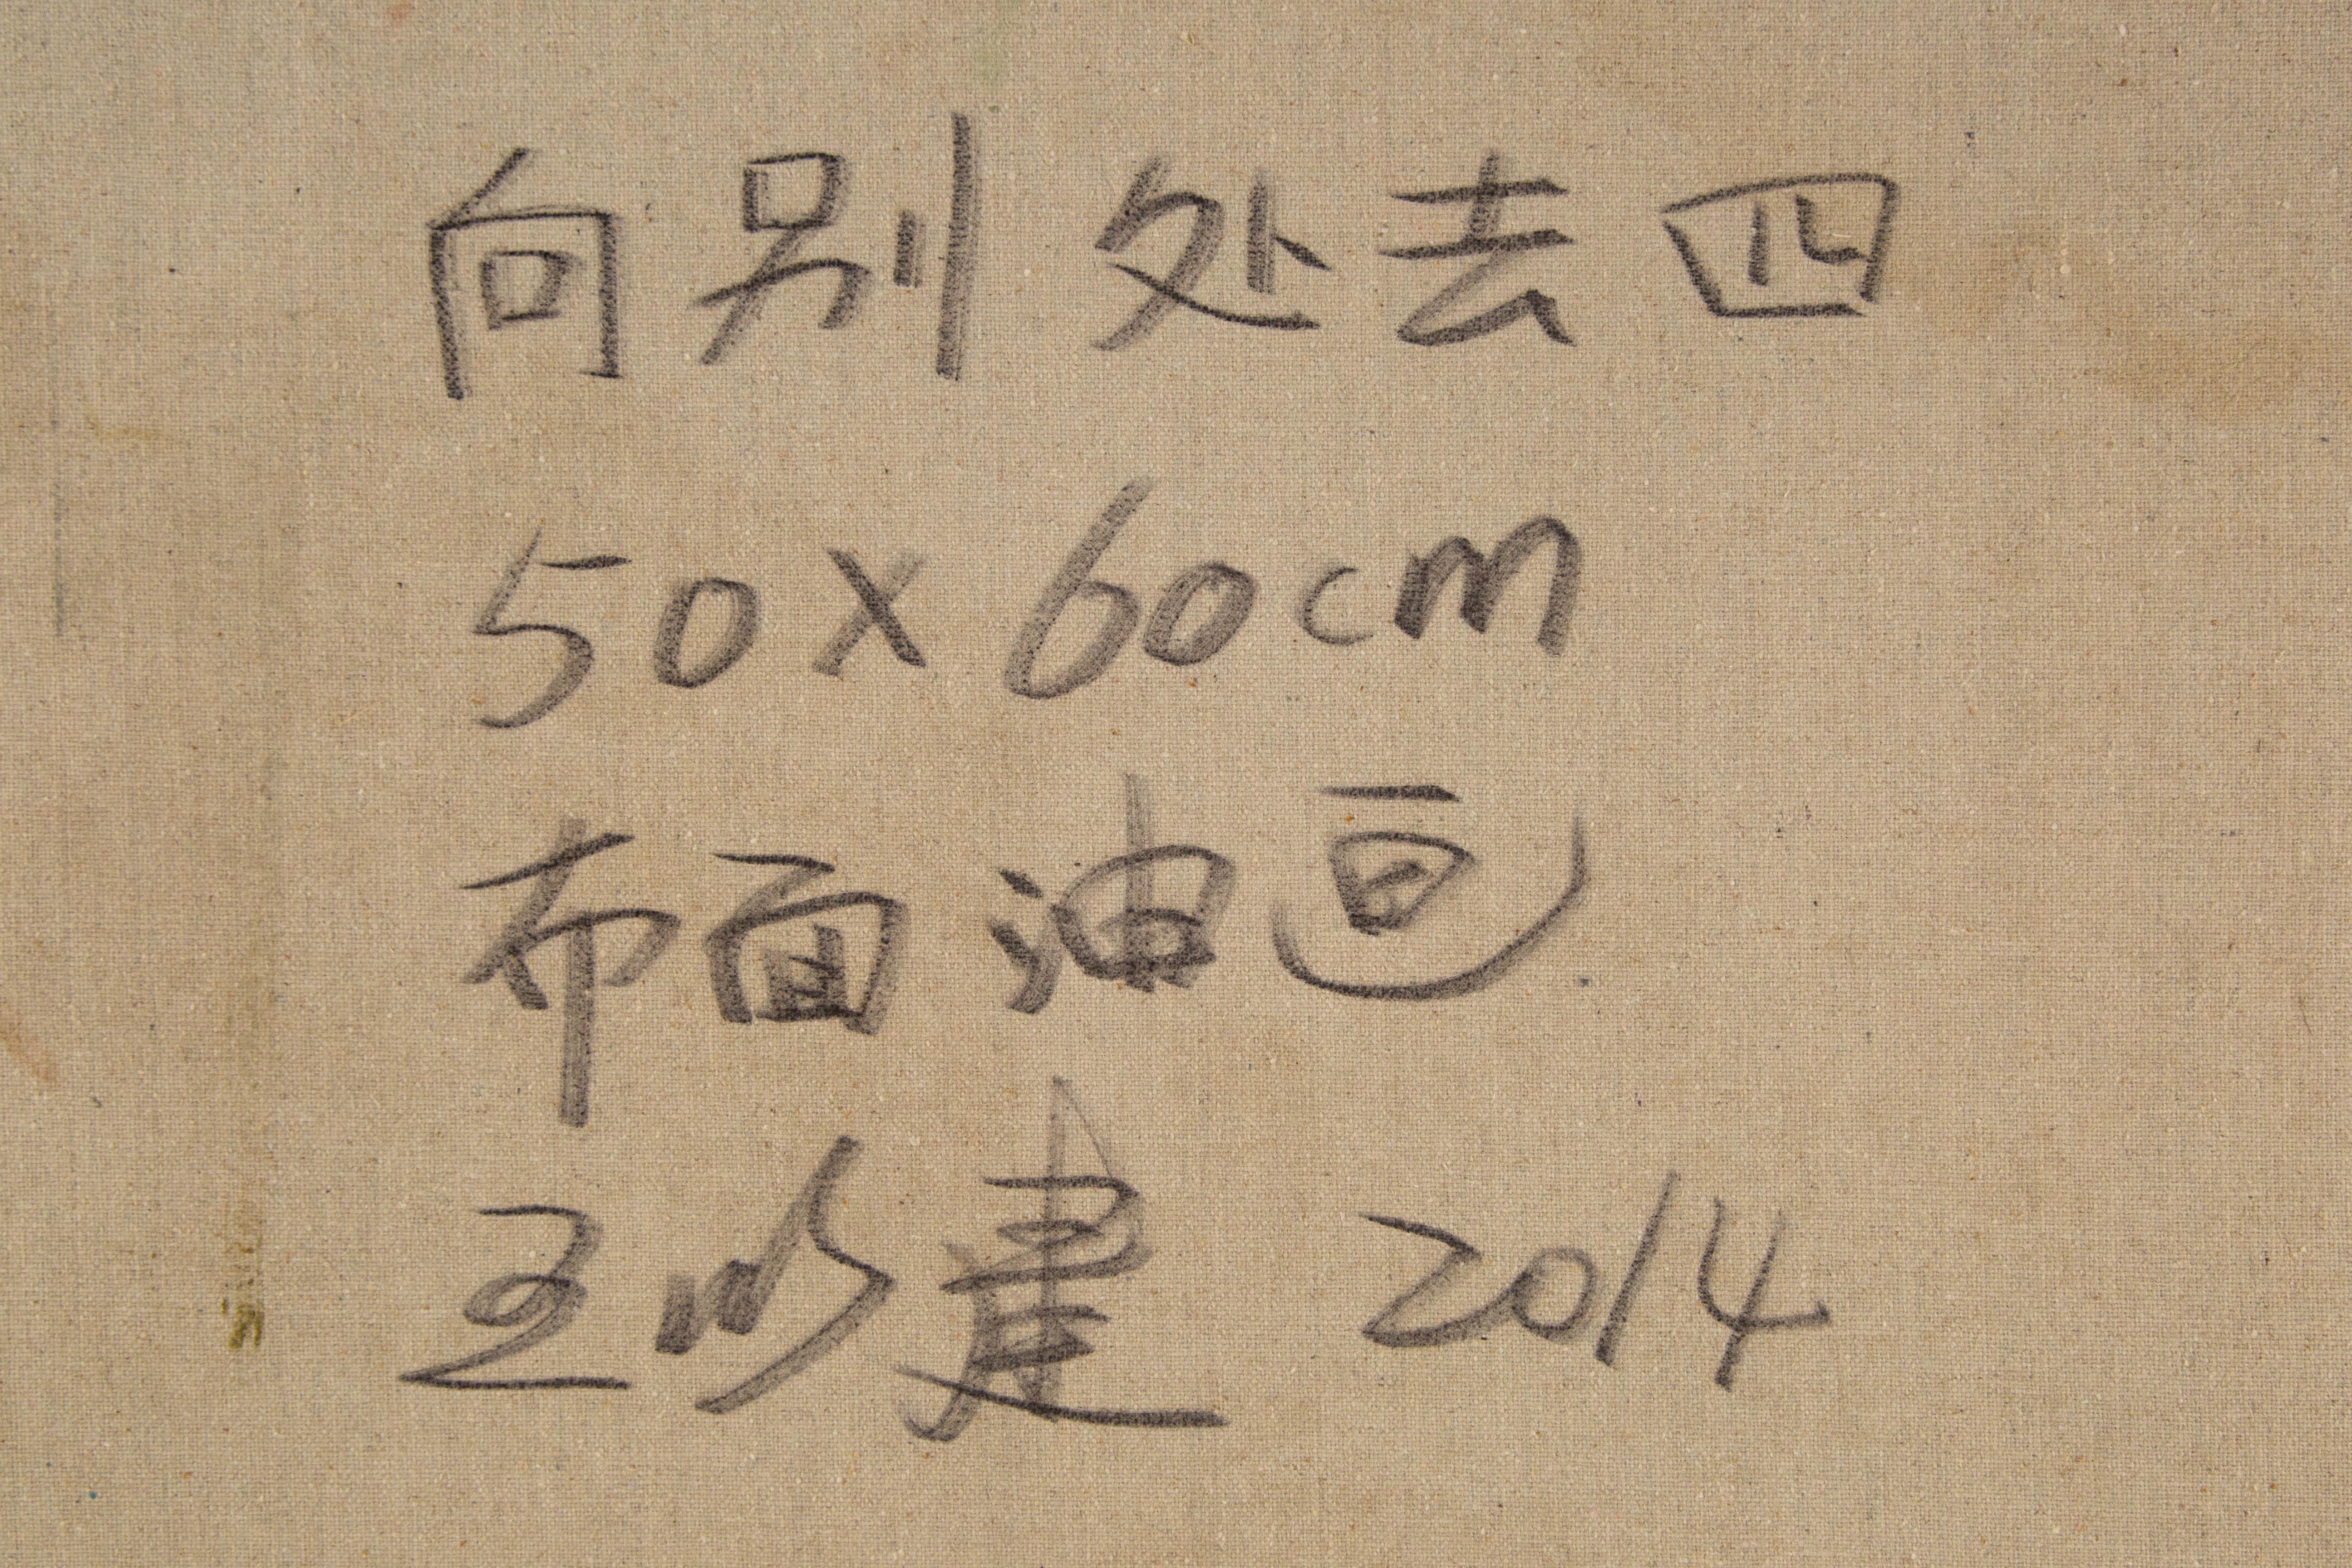 向别处去四
50x60cm
布面油画
王以建 2014